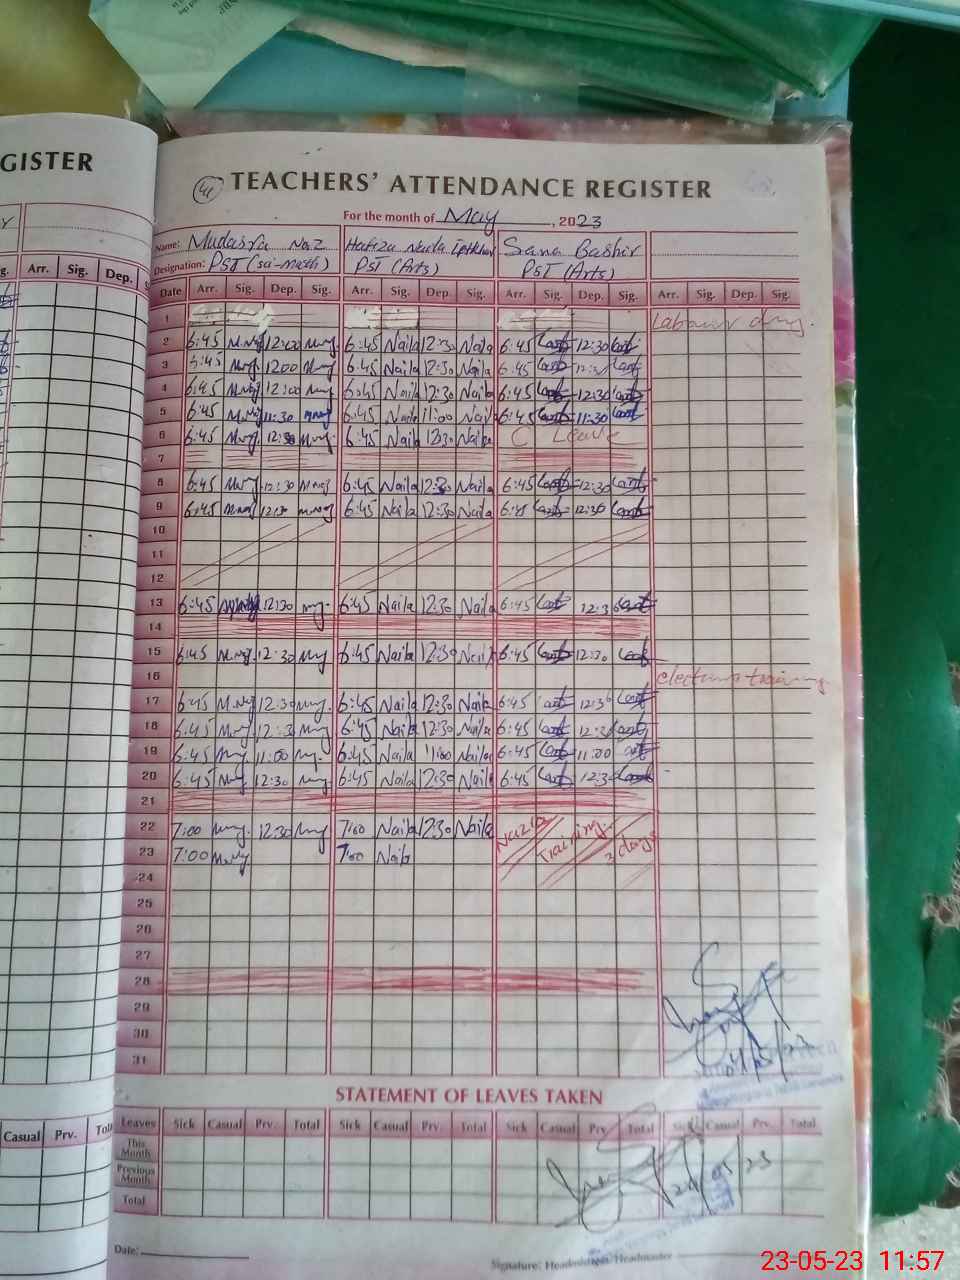 GISTER
41 TEACHERS' ATTENDANCE REGISTER
For the month of May, 2023
Name: Mudasra Naz Hafiza Naila Iftkhar Sana Bashir
Designation: PST (sci-math) PST (Arts) PST (Arts)
Arr. Sig. Dep. Date Arr. Sig. Dep. Sig. Arr. Sig. Dep. Sig. Arr. Sig. Dep. Sig. Arr. Sig. Dep. Sig.
1 Labour day
2 6:45 12:00 6:45 Naila 12:30 Naila 6:45 12:30
3 6:45 12:00 6:45 Naila 12:30 Naila 6:45 12:30
4 6:45 12:00 6:45 Naila 12:30 Naila 6:45 12:30
5 6:45 11:30 6:45 Naila 11:00 Naila 6:45 11:30
6 6:45 12:30 6:45 Naila 12:30 Naila C Leave
7
8 6:45 12:30 6:45 Naila 12:30 Naila 6:45 12:30
9 6:45 12:30 6:45 Naila 12:30 Naila 6:45 12:30
10
11
12
13 6:45 12:30 6:45 Naila 12:30 Naila 6:45 12:30
14
15 6:45 12:30 6:45 Naila 12:30 Naila 6:45 12:30
16 election training
17 6:45 12:30 6:45 Naila 12:30 Naila 6:45 12:30
18 6:45 12:30 6:45 Naila 12:30 Naila 6:45 12:30
19 6:45 11:00 6:45 Naila 11:00 Naila 6:45 11:00
20 6:45 12:30 6:45 Naila 12:30 Naila 6:45 12:30
21
22 7:00 12:30 7:00 Naila 12:30 Naila Nazra Training 3 days
23 7:00 7:00 Naila
24
25
26
27
28
29
30
31
STATEMENT OF LEAVES TAKEN
Casual Prv. Total Leaves Sick Casual Prv. Total Sick Casual Prv. Total Sick Casual Prv. Total Sick Casual Prv. Total
This Month
Previous Month
Total
Date:
Signature: Headmistress/Headmaster
23-05-23 11:57